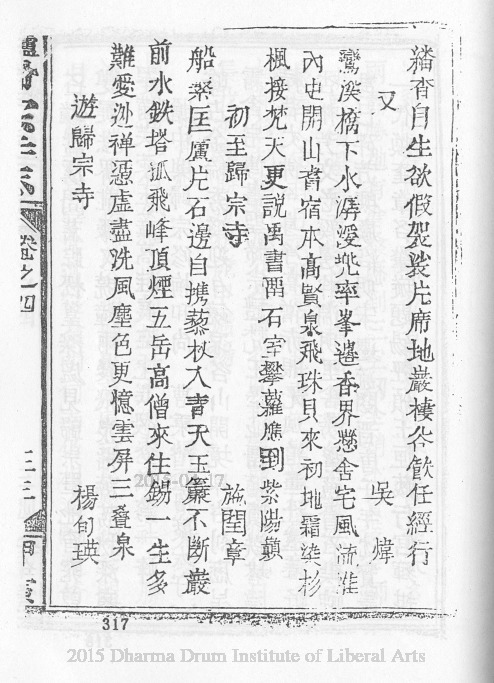 繙杳自生欲假袈裟片席地巖棲谷飲任經行
又
吳煒
鸞溪橋下水潺湲兜率峯邊香界懸舍宅風流推
內史開山耆宿本高賢泉飛珠貝來初地霜染杉
楓接梵天更說禹書留石室攀蘿應到紫陽巔
初至歸宗寺
施閏章
船梁匡廬片石邊自携藜杖入青天玉簾不斷巖
前水鉄塔孤飛峰頂煙五岳高僧來住錫一生多
難愛逃禪憑虛盡洗風塵色更憶雲屏三叠泉
遊歸宗寺
楊旬瑛
卷之四
317
2015 Dharma Drum Institute of Liberal Arts